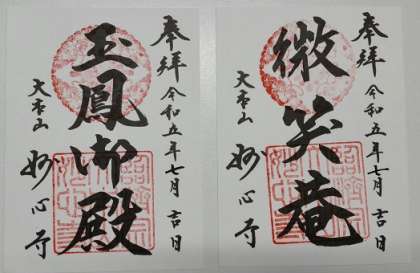 奉拝 令和五年七月吉日
微笑庵
大本山 妙心寺
奉拝 令和五年七月吉日
玉鳳御殿
大本山 妙心寺